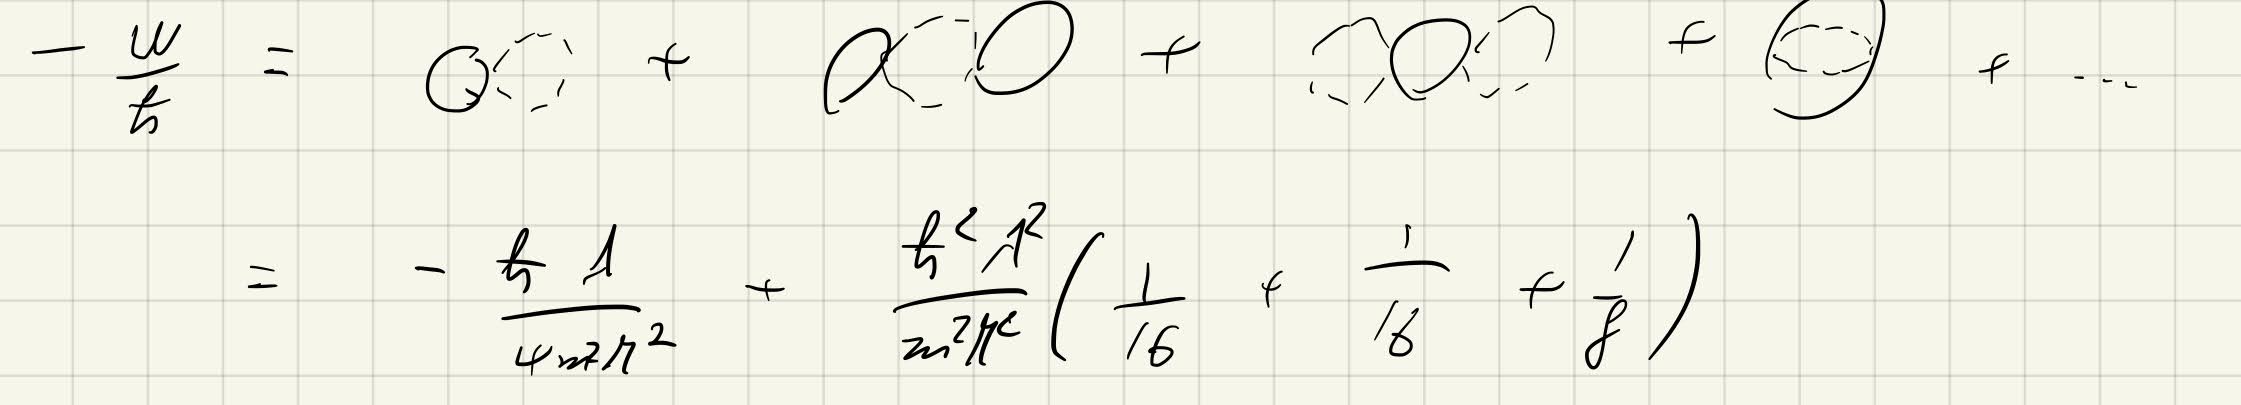 - W/ħ = + + + + ...
= - ħλ/(4m²M²) + ħ²λ²/(m²M²) (1/16 + 1/16 + 1/8)